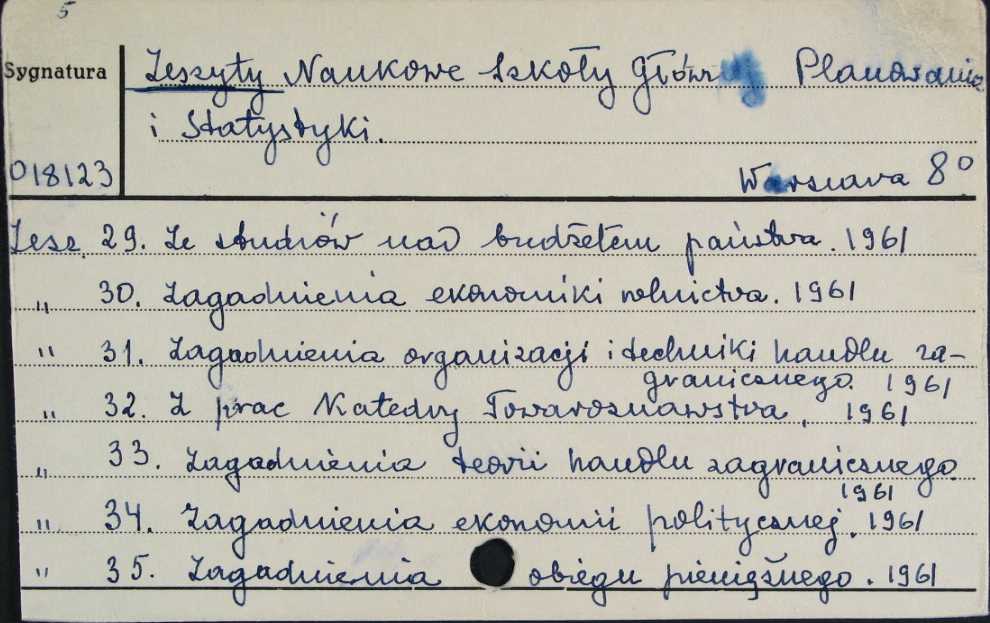 5
Sygnatura
Zeszyty Naukowe Szkoły Głównej Planowania
i Statystyki.
018123
Warszawa 8°
Zesz. 29. Ze studiów nad budżetem państwa. 1961
" 30. Zagadnienia ekonomiki rolnictwa. 1961
" 31. Zagadnienia organizacji i techniki handlu za-
granicznego. 1961
" 32. Z prac Katedry Towaroznawstwa, 1961
" 33. Zagadnienia teorii handlu zagranicznego.
1961
" 34. Zagadnienia ekonomii politycznej. 1961
" 35. Zagadnienia obiegu pieniężnego. 1961